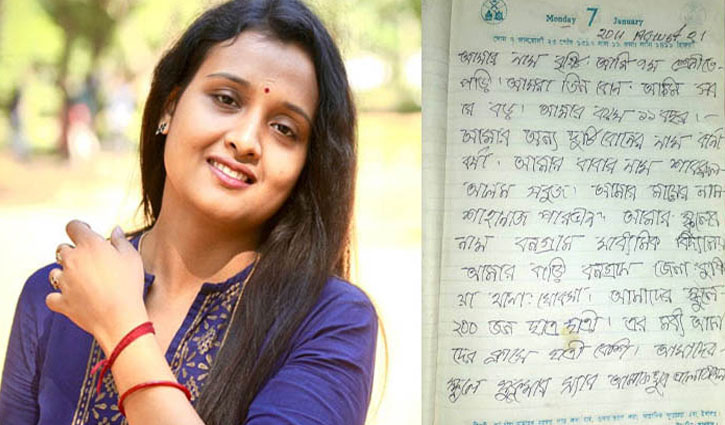 Monday 7 January
2011 August 21
আমার নাম বৃষ্টি আমি ৭ম শ্রেনীতে
পড়ি। আমরা তিন বোন। আমি সব
র বড়। আমার বয়স ১১ বছর।
আমার অন্য দুটি বোনের নাম
বর্ষা। আমার বাবার নাম
আলম সবুজ। আমার মায়ের নাম
শাহনাজ পারভীন। আমার স্কুলের
নাম বনগ্রাম মাধ্যমিক বিদ্যালয়
আমার বাড়ি বনগ্রাম জেলা
য়া থানা খোকসা। আমাদের স্কুলে
২০০ জন ছাত্র ছাত্রী। এর মধ্যে আমা
দের ক্লাসে ছাত্রী বেশী। আমাদের
স্কুলে স্যার